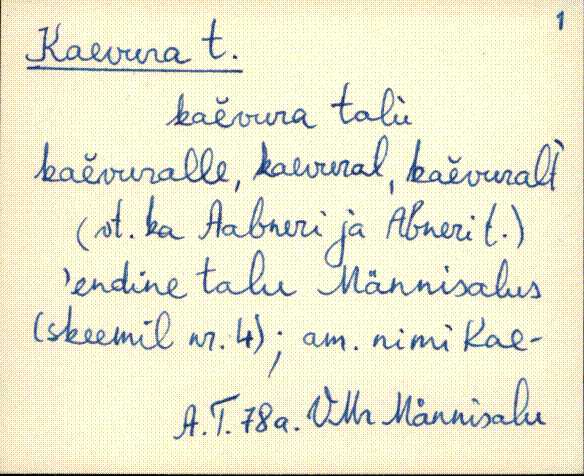 1
Kaevura t.
kaĕvura talù
kaĕvuralle, kaevural, kaĕvuralt
(vt. ka Aabneri ja Abneri t.)
'endine talu Männisalus
(skeemil nr. 4); am. nimi Kae-
A.T. 78a. VMr Männisalu